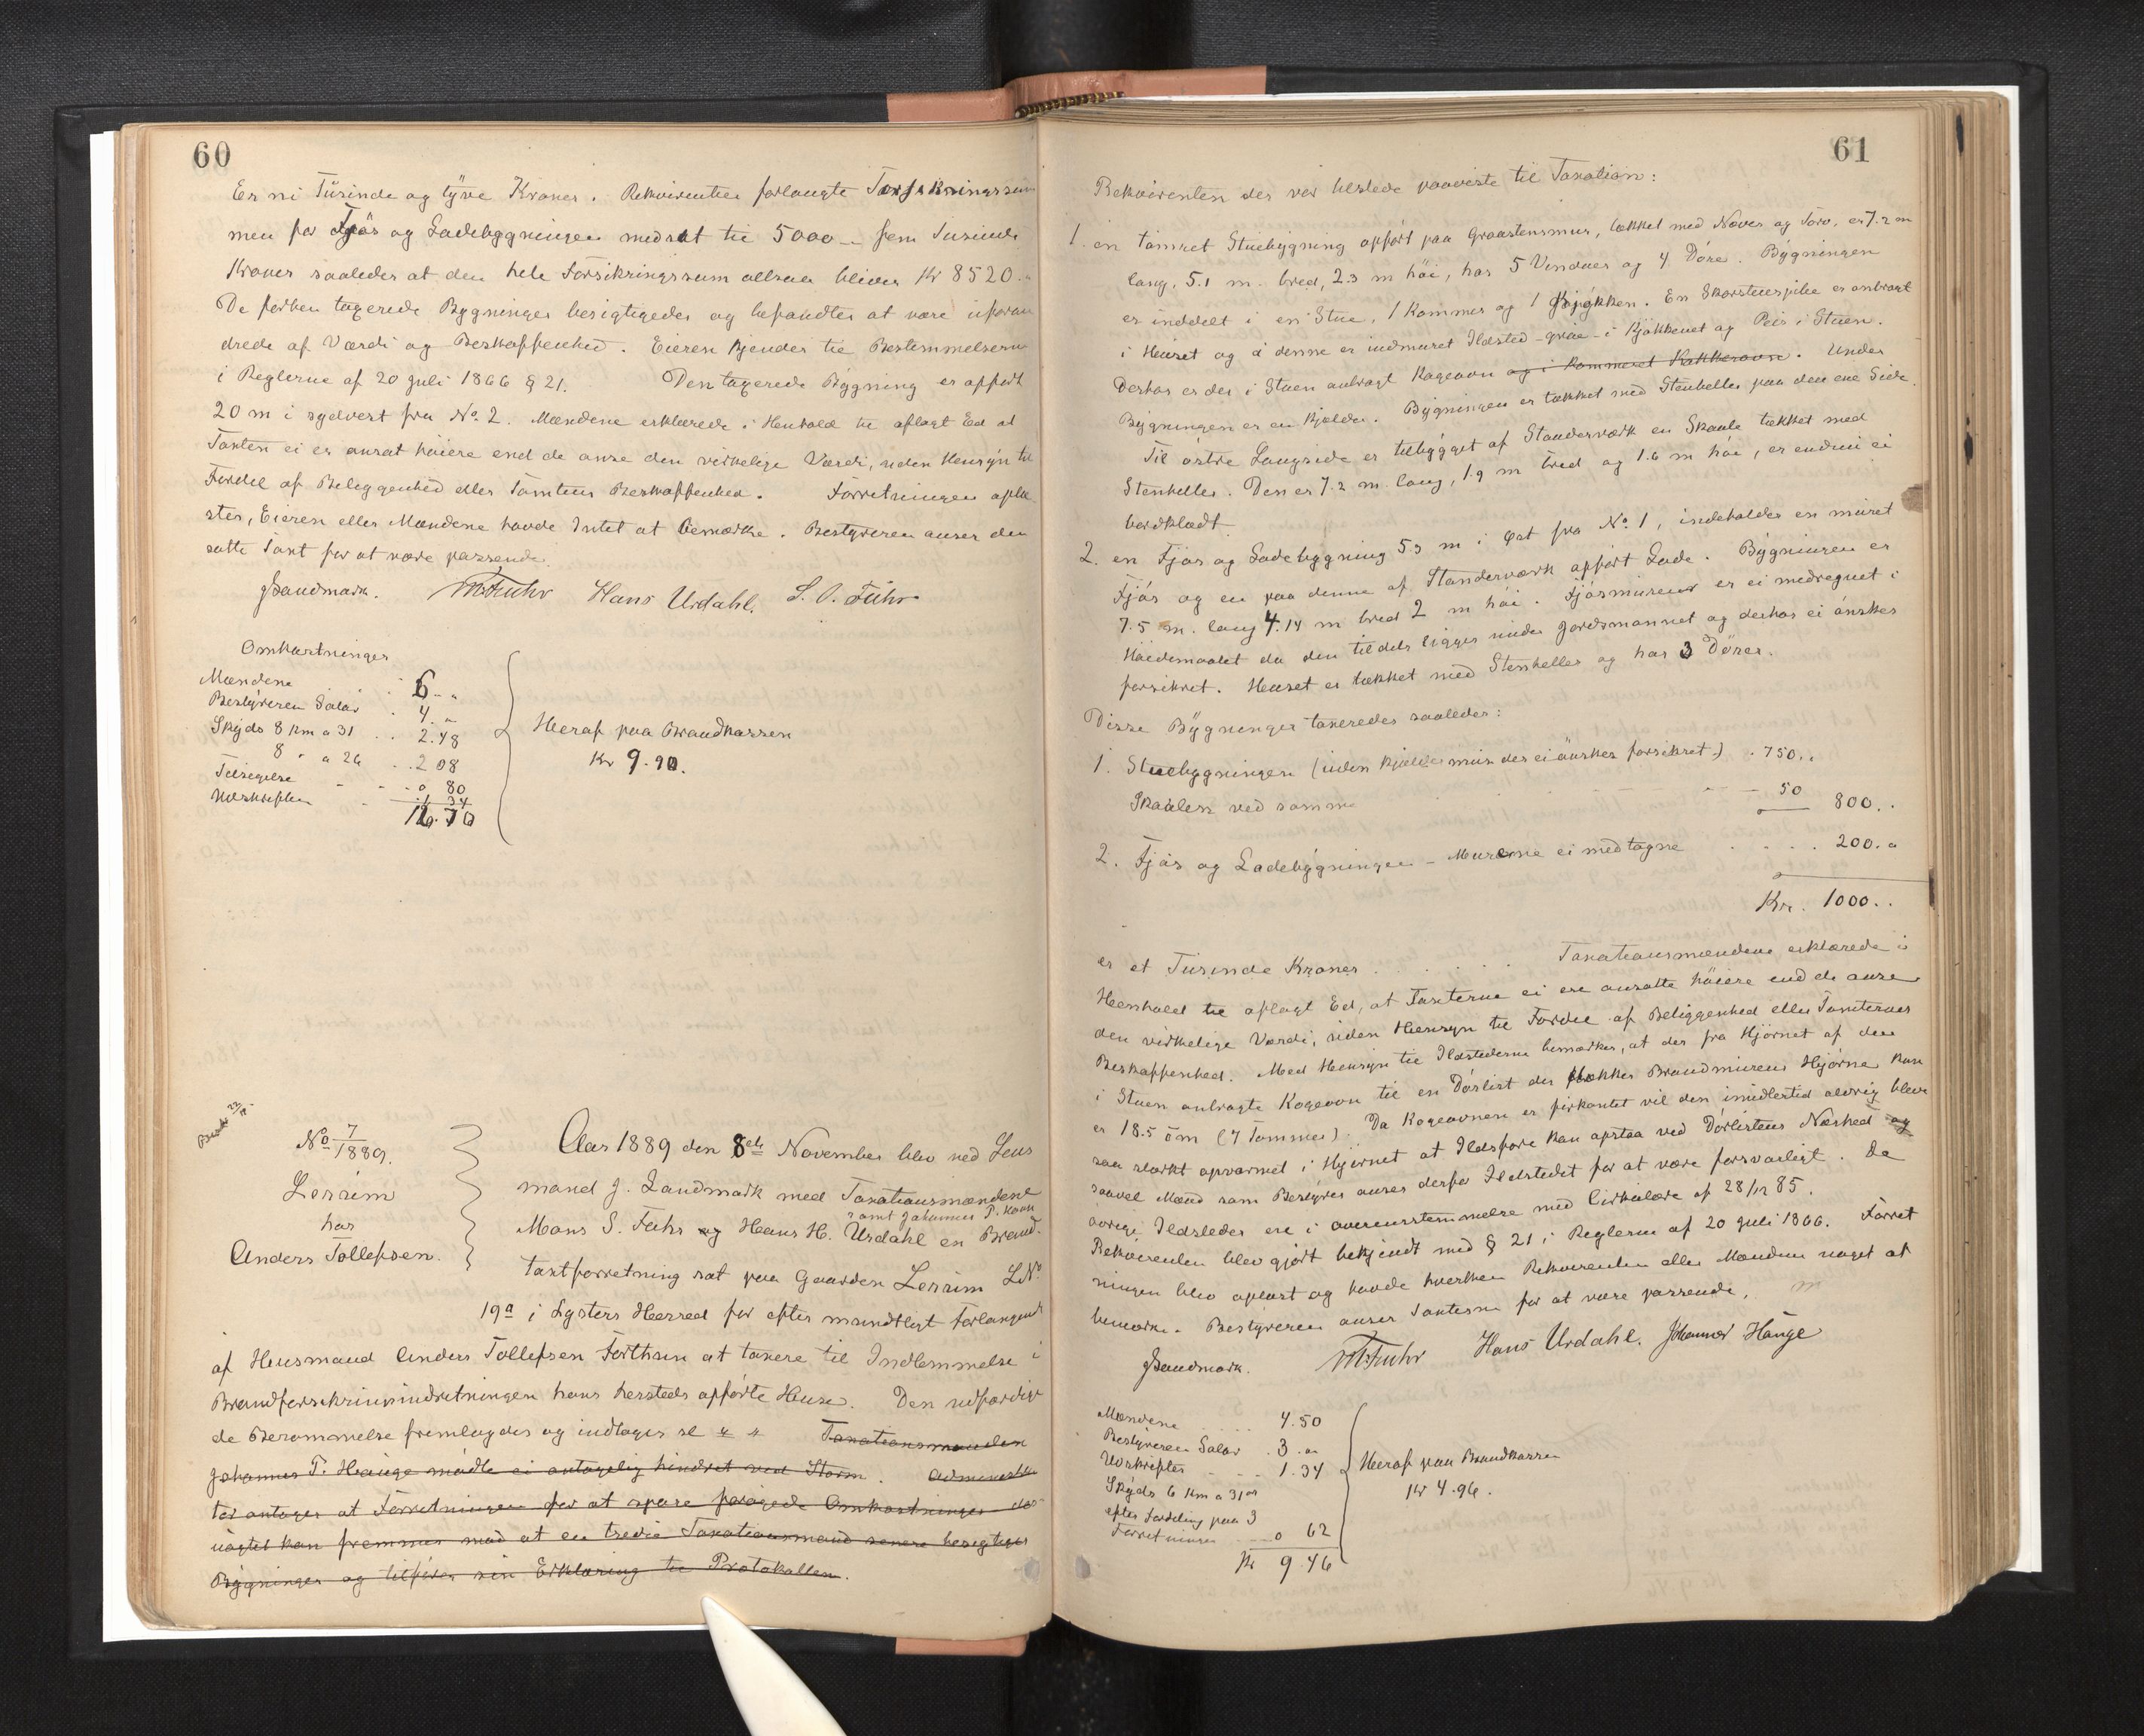 60
Er ni Tusinde og tyve Kroner. Rekvirenten forlangte Forsikringssum
men for Fjös og Ladebygningen nedsat til 5000 - fem Tusinde
Kroner saaledes at den hele Forsikringssum altsaa bliver Kr 8520 ..
De forhen taxerede Bygninger besigtigedes og befandtes at være uforan
drede af Værdi og Beskaffenhed. Eieren kjender til Bestemmelserne
i Reglerne af 20 Juli 1866 § 21. Den taxerede Bygning er opfört
20 m i sydvest fra No 2. Mændene erklærede i Henhold til aflagt Ed at
Taxten ei er ansat höiere end de anse den virkelige Værdi, uden Hensyn til
Fordel af Beliggenhed eller Tomtens Beskaffenhed. Forretningen oplæ
stes, Eieren eller Mændene havde Intet at bemærke. Bestyreren anser den
satte Taxt for at være passende.
JLandmark. MSFuhr Hans Urdahl. S. O. Fuhr
Omkostninger
Mændene 6 - "
Bestyreren Salær . 4. "
Skyds 8 Km a 31 . . 2.48
8 " a 26 . . 2 08
Tilsigelse - - 0 80
Udskriften - 1 34
16.70
Heraf paa Brandkassen
Kr 9.90.
No 7/1889.
Lerrim
hos
Anders Tollefsen.
Aar 1889 den 8de November blev ved Lens
mand J. Landmark med Taxationsmændene
samt Johannes P. Haug
Mons S. Fuhr og Hans H. Urdahl en Brand-
taxtforretning sat paa Gaarden Lerrim LNo
19a i Lysters Herred for efter mundtligt Forlangende
af Husmand Anders Tollefsen Forthun at taxere til Indlemmelse i
Brandforsikringsindretningen hans hersteds opförte Huse. Den udfærdige
de Berammelse fremlagdes og indtages sl
Taxationsmanden
Johannes P. Hauge mödte ei antagelig hindret ved Storm. Administra
tor antager at Forretningen for at spare forögede Omkostninger des
uagtet kan fremmes mod at en tredie Taxationsmand senere besigtiger
Bygninger og tilförer sin Erklæring til Protokollen.
61
Rekvirenten der var tilstede paaviste til Taxation:
1. en tömret Stuebygning opfört paa Graastensmur, tækket med Næver og Torv, er 7.2 m
lang, 5.1 m. bred, 2.3 m höi, har 5 Vinduer og 4 Döre. Bygningen
er inddelt i en Stue, 1 Kammer og 1 Kjökken. En Skorstenspibe er anbragt
i Huset og i denne er indmuret Ildsted - grue - i Kjökkenet og Peis i Stuen.
Derhos er der i Stuen anbragt Kogeovn og i Kammeret Kakkelovn. Under
Bygningen er en Kjelder. Bygningen er tækket med Stenheller paa den ene Side.
Til östre Langside er tilbygget af Standerværk en Skaale tækket med
Stenheller. Den er 7.2 m lang, 1.9 m bred og 1.6 m höi, er endnu ei
bordklædt
2. en Fjös og Ladebygning 5.3 m i Öst fra No 1, indeholder en muret
Fjös og en paa denne af Standerværk opfört Lade. Bygningen er
7.5 m. lang 4.14 m bred 2 m höi. Fjösmuren er ei medregnet i
Höidemaalet da den tildels ligger under Jordsmonnet og derhos ei önskes
forsikret. Huset er tækket med Stenheller og har 3 Döre.
Disse Bygninger taxeredes saaledes:
1. Stuebygningen (uden Kjeldermur der ei önskes forsikret) . 750..
Skaalen ved samme - - - 50
800..
2. Fjös og Ladebygningen - Murene ei medtagne . . . . 200.
Kr. 1000..
er et Tusinde Kroner . . . . Taxationsmændene erklærede i
Henhold til aflagt Ed, at Taxterne ei ere ansatte höiere end de anse
den virkelige Værdi, uden Hensyn til Fordel af Beliggenhed eller Tomternes
Beskaffenhed. Med Hensyn til Ildstederne bemærkes, at der fra Hjörnet af den
i Stuen anbragte Kogeovn til en Dörlist der dækker Brandmurens Hjörne kun
er 18.5 cm (7 Tommer). Da Kogeovnen er firkantet vil den imidlertid aldrig blive
saa stærkt opvarmet i Hjörnet at Ildsfare kan opstaa ved Dörlistens Nærhed og
saavel Mænd som Bestyrer anser derfor Ildstedet for at være forsvarligt. De
övrige Ildsteder ere i overensstemmelse med Cirkulære af 28/12 85.
Rekvirenten blev gjört bekjendt med § 21 i Reglerne af 20 Juli 1866. Forret
ningen blev oplæst og havde hverken Rekvirenten eller Mændene noget at
bemærke. Bestyreren anser Taxterne for at være passende.
JLandmark. MSFuhr Hans Urdahl. Johannes Hauge
Mændene . . . 4.50
Bestyreren Salær . 3. "
Udskriften - - 1.34
Skyds 6 Km a 31 ör
efter Fordeling paa 3
Forretninger - 0 62
Kr 9.46
Heraf paa Brandkassen
Kr 4.96.